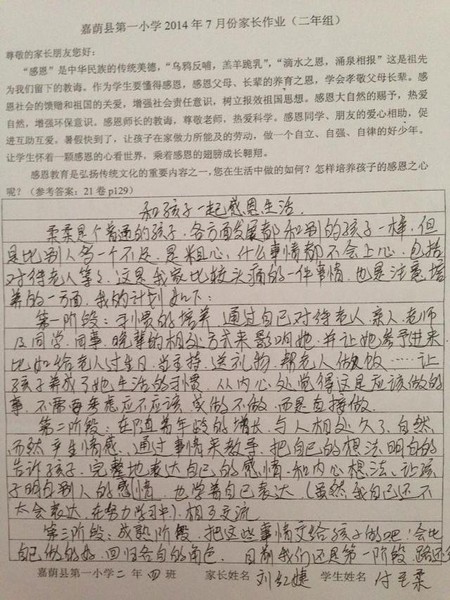 嘉荫县第一小学2014年7月份家长作业（二年组）
尊敬的家长朋友您好：
“感恩”是中华民族的传统美德，“乌鸦反哺，羔羊跪乳”，“滴水之恩，涌泉相报”这是祖先
为我们留下的教诲。作为学生要懂得感恩，感恩父母、长辈的养育之恩，学会孝敬父母长辈。感
恩社会的馈赠和祖国的关爱，增强社会责任意识，树立报效祖国思想。感恩大自然的赐予，热爱
自然，增强环保意识，感恩师长的教诲，尊敬老师，热爱科学。感恩同学、朋友的爱心相助，促
进互助互爱。暑假快到了，让孩子在家做力所能及的劳动，做一个自立、自强、自律的好少年。
让学生怀着一颗感恩的心看世界，乘着感恩的翅膀成长翱翔。
感恩教育是弘扬传统文化的重要内容之一，您在生活中做的如何？怎样培养孩子的感恩之心
呢？（参考答案：21卷p129）
和孩子一起感恩生活
柔柔是个普通的孩子，各方面发展都和别的孩子一样，但
是比别人多一个不足，是粗心，什么事情都不会上心，包括
对待老人等，这是我家比较头痛的一件事情，也是注意培
养的一方面，我的计划如下：
第一阶段：习惯的培养，通过自己对待老人、亲人、老师
及同学、同事、晚辈的相处方式来影响她，并让她参予进来
比如给老人过生日，当主持，送礼物，帮老人做饭……让
孩子养成了她生活的习惯，从内心处觉得这是应该做的
事，不需要考虑应不应该，或做不做，而是直接做。
第二阶段：在随着年龄的增长，与人相处久了，自然
而然产生情感，通过事情来教导，把自己的想法明白的
告诉孩子，完整地表达自己的感情和内心想法，让孩
子明白别人的感情，也学着自己表达（虽然我自己还不
太会表达，在努力学习中）相互交流
第三阶段：成熟阶段，把这些事情交给孩子做吧！会比
自己做的好，回归各自的角色，目前我们还是第一阶段，路还
嘉荫县第一小学二年四班 家长姓名 刘红婕 学生姓名 付玉柔